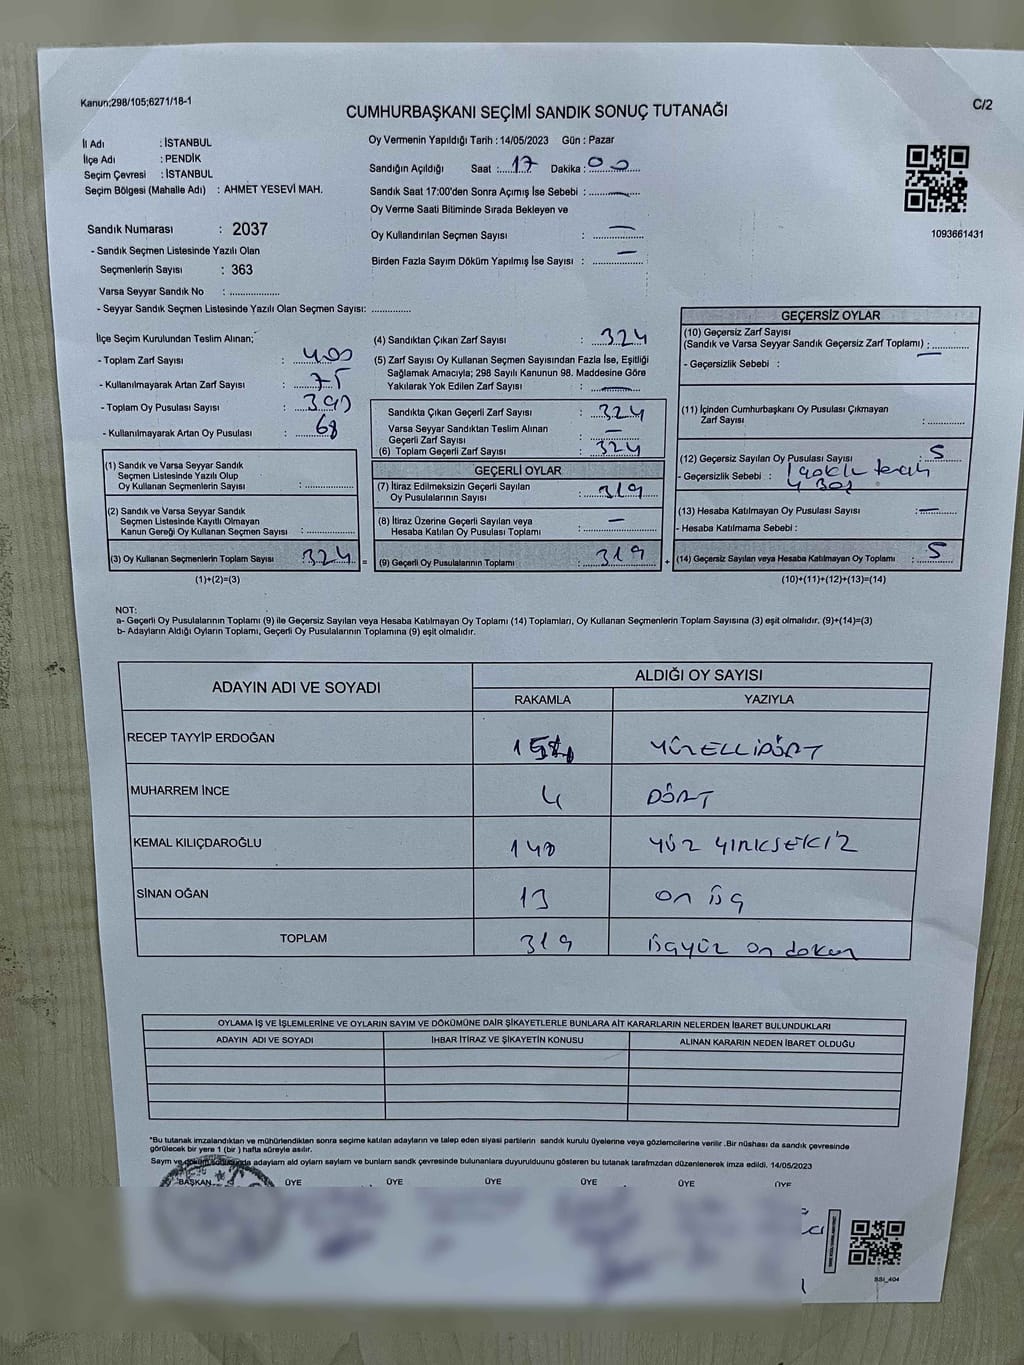 Kanun;298/105;6271/18-1
C/2
CUMHURBAŞKANI SEÇİMİ SANDIK SONUÇ TUTANAĞI
İl Adı : İSTANBUL
İlçe Adı : PENDİK
Seçim Çevresi : İSTANBUL
Seçim Bölgesi (Mahalle Adı) : AHMET YESEVİ MAH.
Oy Vermenin Yapıldığı Tarih : 14/05/2023 Gün : Pazar
Sandığın Açıldığı Saat :....17 Dakika :.00........
Sandık Saat 17:00'den Sonra Açımış İse Sebebi : ..............
Oy Verme Saati Bitiminde Sırada Bekleyen ve
Oy Kullandırılan Seçmen Sayısı : ..............
Birden Fazla Sayım Döküm Yapılmış İse Sayısı : ..............
1093661431
Sandık Numarası : 2037
- Sandık Seçmen Listesinde Yazılı Olan
Seçmenlerin Sayısı : 363
Varsa Seyyar Sandık No : ..............
- Seyyar Sandık Seçmen Listesinde Yazılı Olan Seçmen Sayısı: ...........
İlçe Seçim Kurulundan Teslim Alınan;
- Toplam Zarf Sayısı : 400
- Kullanılmayarak Artan Zarf Sayısı : 75
- Toplam Oy Pusulası Sayısı :
- Kullanılmayarak Artan Oy Pusulası : 68
(1) Sandık ve Varsa Seyyar Sandık
Seçmen Listesinde Yazılı Olup
Oy Kullanan Seçmenlerin Sayısı :..............
(2) Sandık ve Varsa Seyyar Sandık
Seçmen Listesinde Kayıtlı Olmayan
Kanun Gereği Oy Kullanan Seçmen Sayısı :..............
(3) Oy Kullanan Seçmenlerin Toplam Sayısı : 324 =
(1)+(2)=(3)
(4) Sandıktan Çıkan Zarf Sayısı : 324
(5) Zarf Sayısı Oy Kullanan Seçmen Sayısından Fazla İse, Eşitliği
Sağlamak Amacıyla; 298 Sayılı Kanunun 98. Maddesine Göre
Yakılarak Yok Edilen Zarf Sayısı : ..............
Sandıkta Çıkan Geçerli Zarf Sayısı : 324
Varsa Seyyar Sandıktan Teslim Alınan
Geçerli Zarf Sayısı : —
(6) Toplam Geçerli Zarf Sayısı : 324
GEÇERLİ OYLAR
(7) İtiraz Edilmeksizin Geçerli Sayılan
Oy Pusulalarının Sayısı : 319
(8) İtiraz Üzerine Geçerli Sayılan veya
Hesaba Katılan Oy Pusulaları Toplamı : —
(9) Geçerli Oy Pusulalarının Toplamı : 319 +
GEÇERSİZ OYLAR
(10) Geçersiz Zarf Sayısı
(Sandık ve Varsa Seyyar Sandık Geçersiz Zarf Toplamı) : —
- Geçersizlik Sebebi :
(11) İçinden Cumhurbaşkanı Oy Pusulası Çıkmayan
Zarf Sayısı : ...........
(12) Geçersiz Sayılan Oy Pusulası Sayısı : 5
- Geçersizlik Sebebi : 1 çoklu tercih
4 Boş
(13) Hesaba Katılmayan Oy Pusulası Sayısı : —
- Hesaba Katılmama Sebebi :
(14) Geçersiz Sayılan veya Hesaba Katılmayan Oy Toplamı : 5
(10)+(11)+(12)+(13)=(14)
NOT:
a- Geçerli Oy Pusulalarının Toplamı (9) ile Geçersiz Sayılan veya Hesaba Katılmayan Oy Toplamı (14) Toplamları, Oy Kullanan Seçmenlerin Toplam Sayısına (3) eşit olmalıdır. (9)+(14)=(3)
b- Adayların Aldığı Oyların Toplamı, Geçerli Oy Pusulalarının Toplamına (9) eşit olmalıdır.
ADAYIN ADI VE SOYADI
ALDIĞI OY SAYISI
RAKAMLA YAZIYLA
RECEP TAYYİP ERDOĞAN 154 YÜZELLİDÖRT
MUHARREM İNCE 4 DÖRT
KEMAL KILIÇDAROĞLU 148 YÜZ KIRKSEKİZ
SİNAN OĞAN 13 on üç
TOPLAM 319 üçyüz on dokuz
OYLAMA İŞ VE İŞLEMLERİNE VE OYLARIN SAYIM VE DÖKÜMÜNE DAİR ŞİKAYETLERLE BUNLARA AİT KARARLARIN NELERDEN İBARET BULUNDUKLARI
ADAYIN ADI VE SOYADI İHBAR İTİRAZ VE ŞİKAYETİN KONUSU ALINAN KARARIN NEDEN İBARET OLDUĞU
*Bu tutanak imzalandıktan ve mühürlendikten sonra seçime katılan adayların ve talep eden siyasi partilerin sandık kurulu üyelerine veya gözlemcilerine verilir .Bir nüshası da sandık çevresinde
görülecek bir yere 1 (bir ) hafta süreyle asılır.
Sayım ve döküm adayların aldı oyların sayları ve bunların sandk çevresinde bulunanlara duyurulduunu gösteren bu tutanak tarafmzdan düzenlenerek imza edildi. 14/05/2023
BAŞKAN ÜYE ÜYE ÜYE ÜYE ÜYE ÜYE
SSİ_404